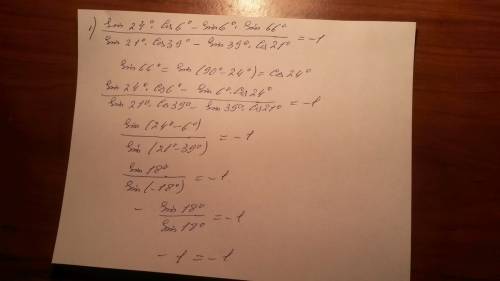 1) (sin 24° · cos 6° - sin 6° · sin 66°) / (sin 21° · cos 39° - sin 39° · cos 21°) = -1
sin 66° = sin (90° - 24°) = cos 24°
(sin 24° · cos 6° - sin 6° · cos 24°) / (sin 21° · cos 39° - sin 39° · cos 21°) = -1
sin (24° - 6°) / sin (21° - 39°) = -1
sin 18° / sin (-18°) = -1
- sin 18° / sin 18° = -1
- 1 = -1